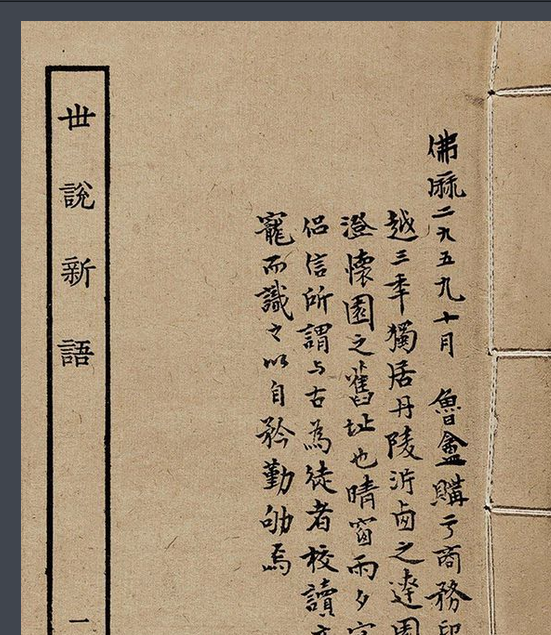 佛厤二九五九十月 魯盦購亏商務印
越三年獨居丹陵沜卤之達園
澄懷園之舊址也晴窗雨夕
侣信所謂与古為徒者校讀
寵而識之以自矜勤劬焉
世說新語
一